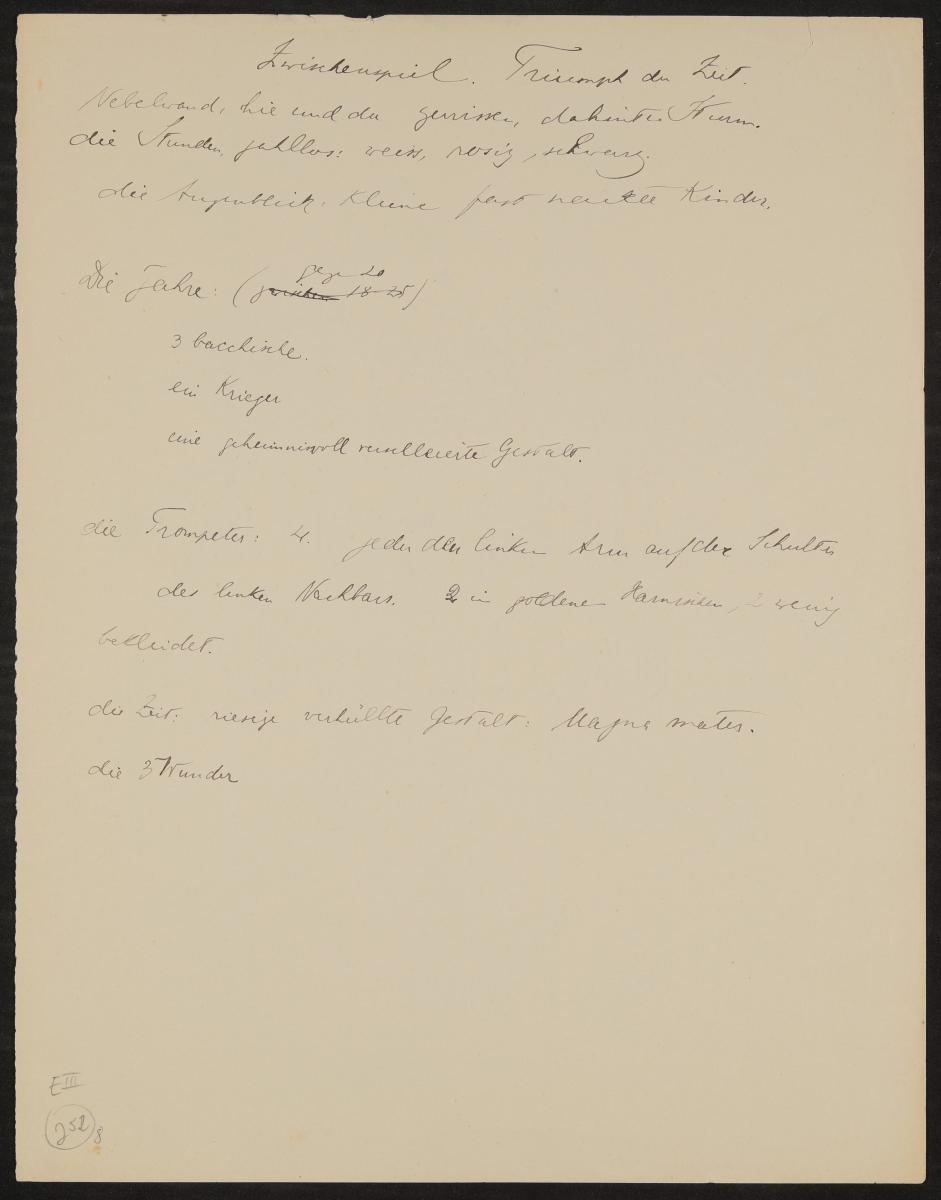 Zwischenspiel. Triumph der Zeit.
Nebelwand, hie und da zerrissen, dahinter Sturm.
die Stunden, zahllos: weiss, rosig, schwarz.
die Augenblick. kleine fast nackte Kinder.
gegen 20
Die Jahre: (zwischen 18-25)
3 bacchische.
ein Krieger
eine geheimnisvoll verschleierte Gestalt.
die Trompeter: 4. jeder den linken Arm auf der Schulter
des linken Nachbars. 2 in goldenen Harnischen, 2 wenig
bekleidet.
die Zeit: riesige verhüllte Gestalt: Magna mater.
die 3 Wunder
E III
52
8